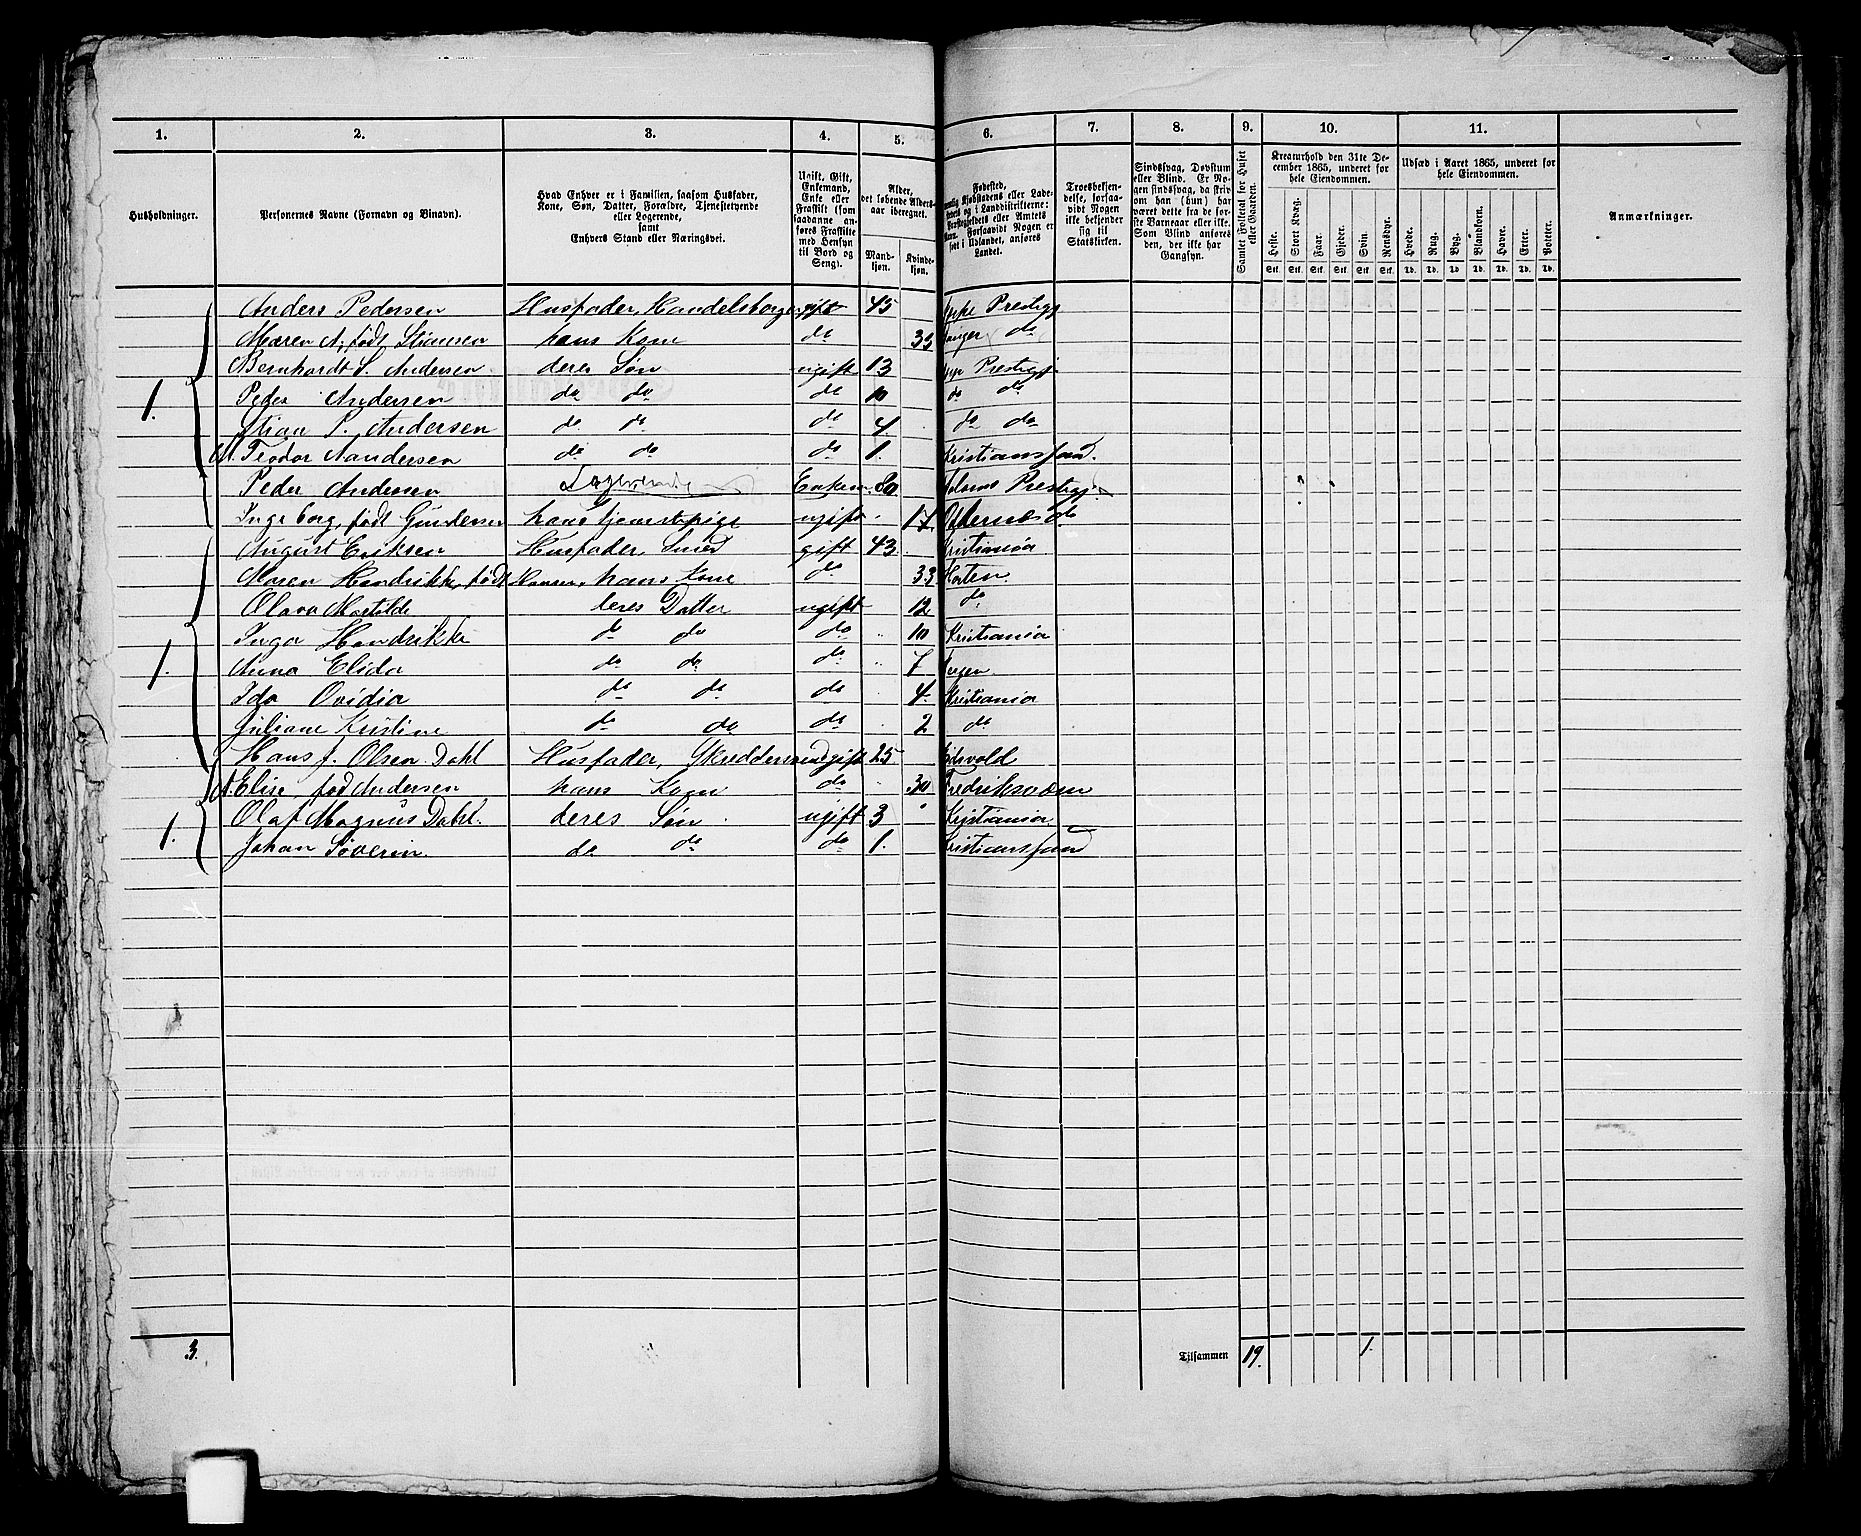 1. 2. 3. 4. 5. 6. 7. 8. 9. 10. 11.
Husholdninger.
Personernes Navne (Fornavn og Binavn).
Hvad Enhver er i Familien, saasom Husfader,
Kone, Søn, Datter, Forældre, Tjenestetyende
eller Logerende,
samt
Enhvers Stand eller Næringsvei.
Ugift, Gift,
Enkemand,
Enke eller
Fraskilt (som
saadanne an-
føres Fraskilte
med Hensyn
til Bord og
Seng).
Alder,
det løbende Alders-
aar iberegnet.
Mand-
kjøn.
Kvinde-
kjøn.
Fødested,
Kjøbstadens eller Lade-
og i Landdistrikterne:
eller Amtets
Forsaavidt Nogen er
født i Udlandet, anføres
Landet.
Troesbekjen-
delse, forsaa-
vidt Nogen
ikke bekjender
sig til
Statskirken.
Sindssvag, Døvstum
eller Blind. Er No-
gen sindssvag, da skriv
om han (hun) har
været dette fra de før-
ste Barneaar eller ikke.
Som Blind anføres
den, der ikke har
Gangsyn.
Samlet Folketal for Huset
eller Gaarden.
Kreaturhold den 31te De-
cember 1865, underet for
hele Eiendommen.
Heste. Stort Kvæg. Faar. Gjeder. Svin. Rensdyr.
Stk. Stk. Stk. Stk. Stk. Stk.
Udsæd i Aaret 1865, underet for
hele Eiendommen.
Hvede. Rug. Byg. Blandkorn. Havre. Erter. Poteter.
Td. Td. Td. Td. Td. Td. Td.
Anmærkninger.
Anders Pedersen Husfader, Handelsborger gift 45 Præstegj
Maren A, født Stiansen hans Kone do 33 do
Bernhardt S. Andersen deres Søn ugift 13 Prestegj.
1. Peder Andersen do do do 10 do do
Stian P. Andersen do do do 4. do do
Teodor Aandersen do do do 1. Kristianssand.
Peder Andersen Logerende Enkem. 80 Prestegj.
Ingeborg, født Gundersen hans tjenstepige ugift 17 Oddernes do
August Eriksen Husfader, Smed gift 43 Kristiania
Maren Hendrikke, født Hansen, hans Kone do 33 Horten
Olava Matilde deres Datter ugift 12 do
Inga Hendrikke do do do 10 Kristiania
1. Anna Elida do do do 7
Ida Ovidia do do do 4 Kristiania
Juliane Kristine do do do 2 do
Hans J. Olsen Dahl Husfader, Skreddersvend gift 25 Eidsvold
Elise fød Andersen hans Kone do 30 Fredriksværn
1. Olaf Magnus Dahl. deres Søn ugift 3 Kristiania
Johan Severin. do do do 1. Kristianssand
3. Tilsammen 19. 1.